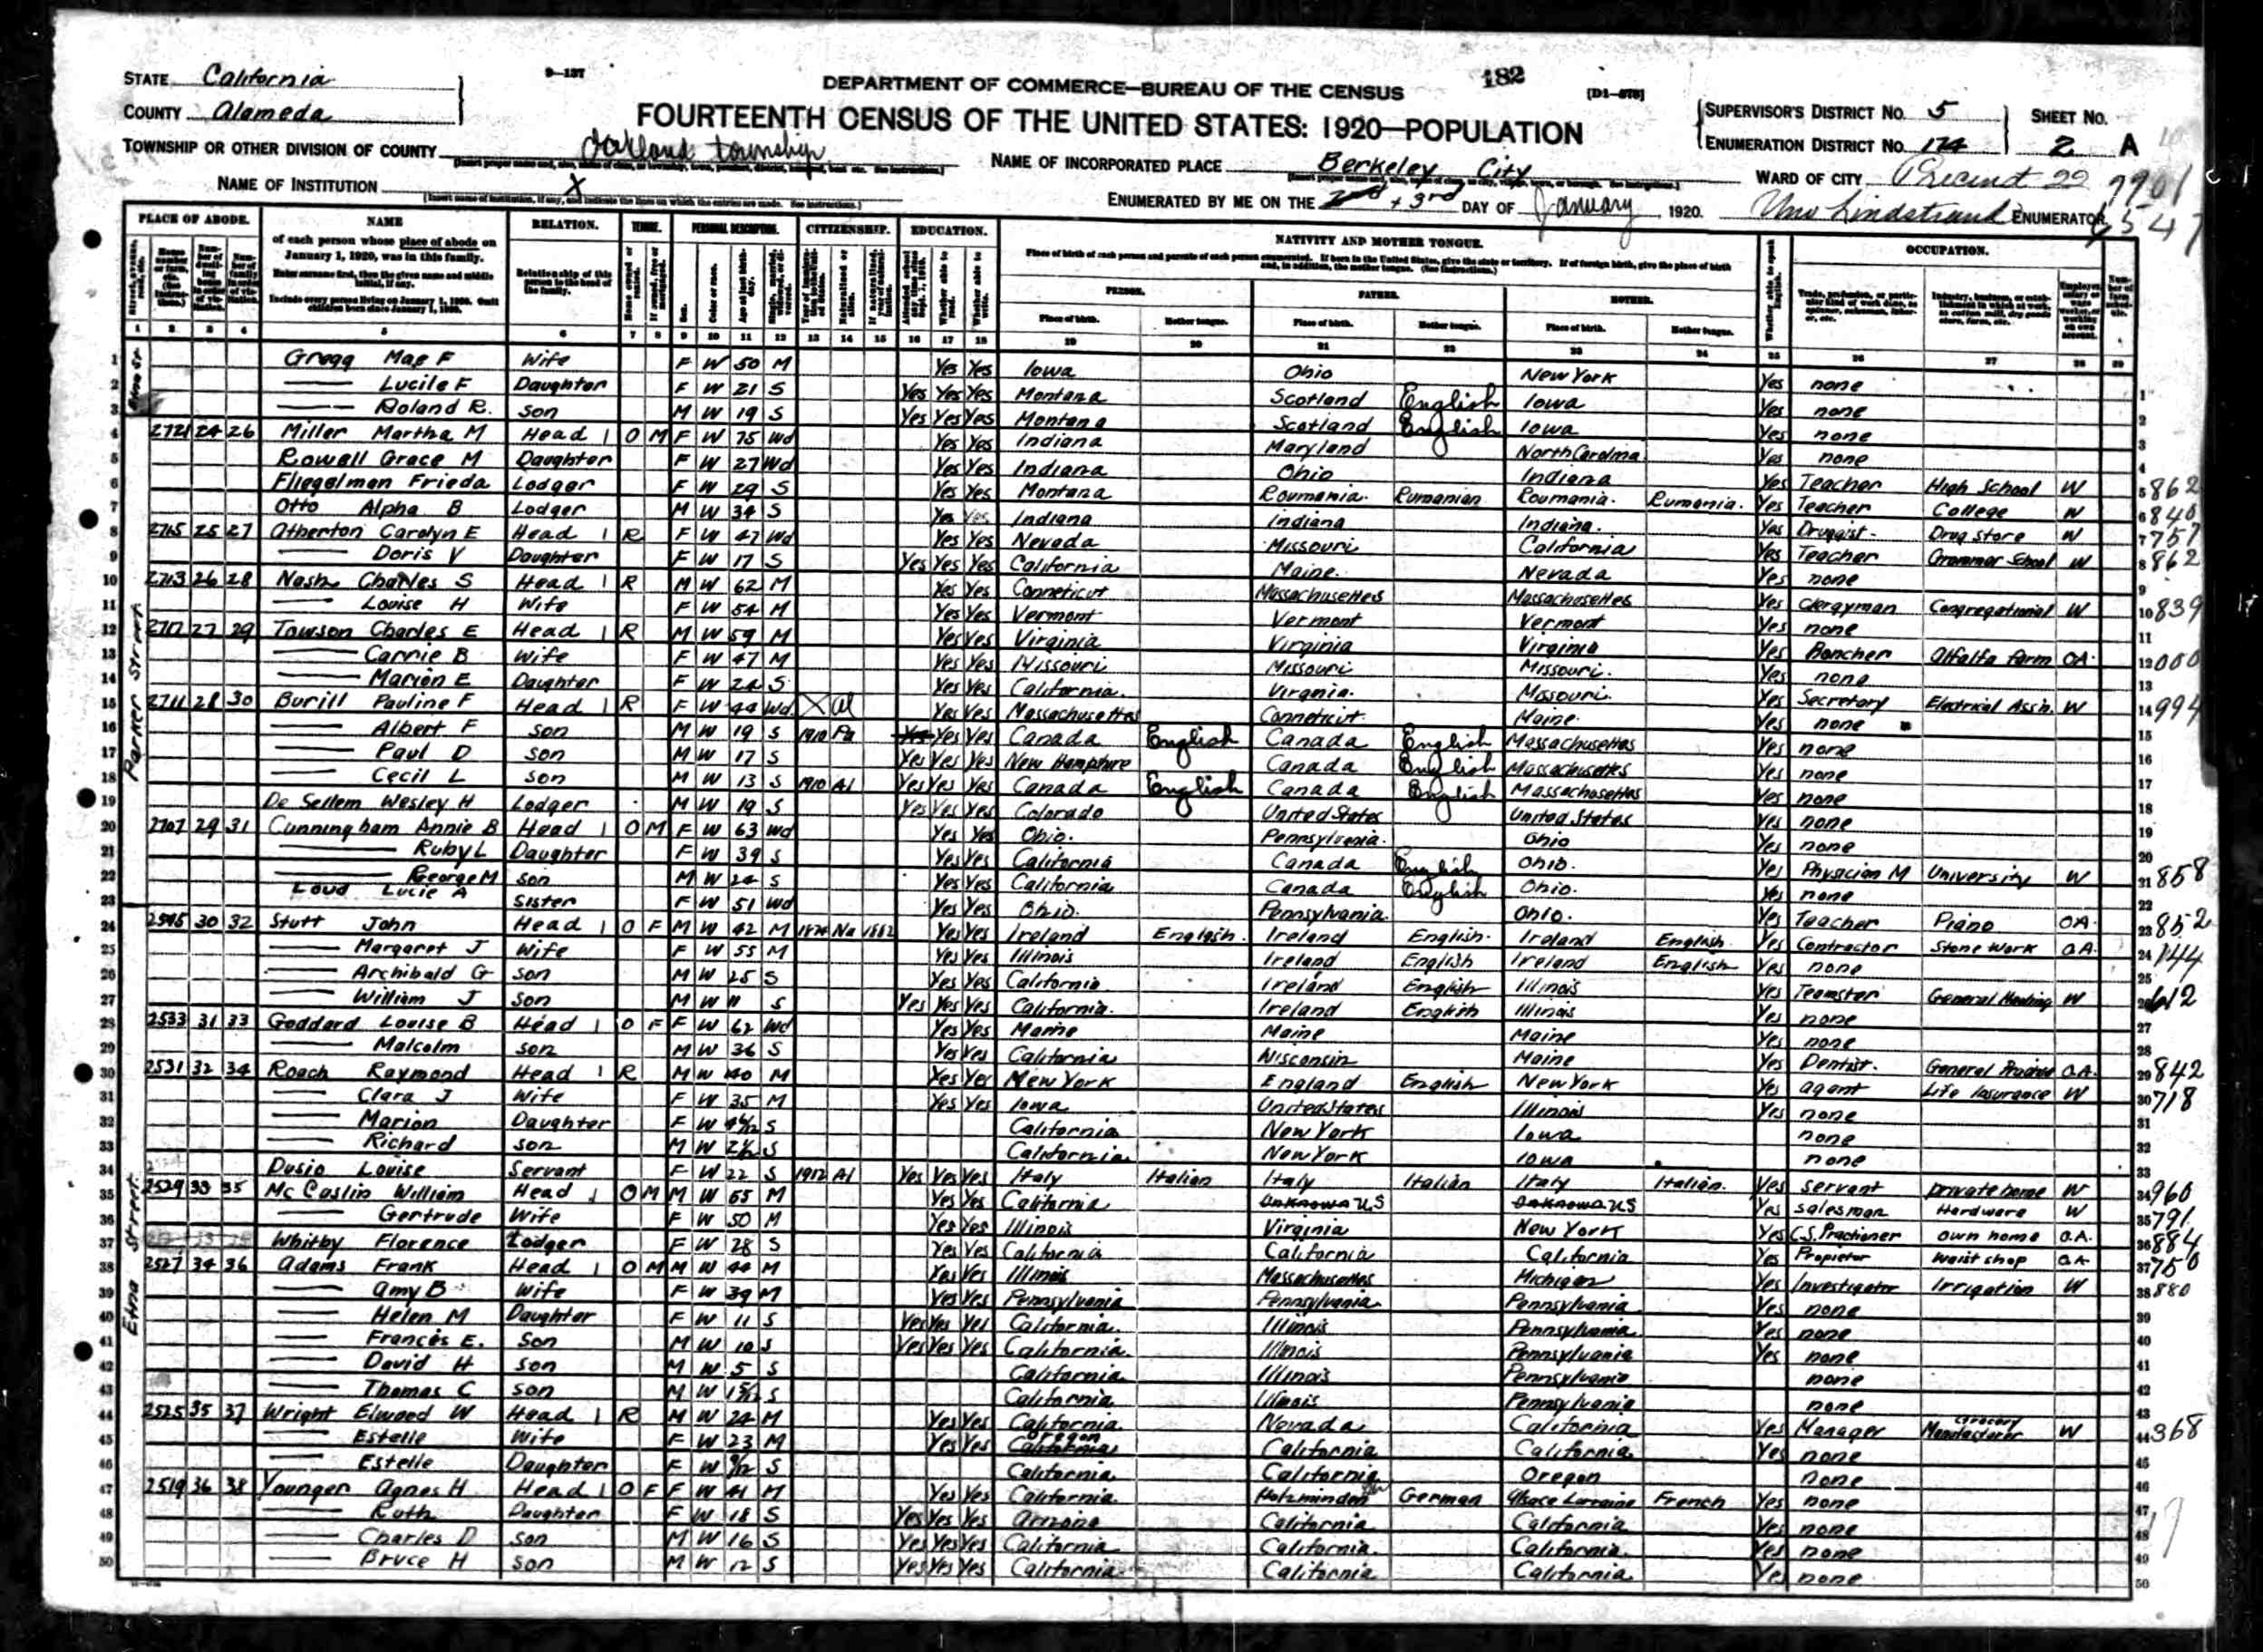 STATE California
9-137
DEPARTMENT OF COMMERCE—BUREAU OF THE CENSUS
182
[D1-878]
COUNTY Alameda
FOURTEENTH CENSUS OF THE UNITED STATES: 1920—POPULATION
SUPERVISOR'S DISTRICT No. 5
SHEET No.
ENUMERATION DISTRICT No. 174
2 A
TOWNSHIP OR OTHER DIVISION OF COUNTY Oakland township
NAME OF INCORPORATED PLACE Berkeley City
WARD OF CITY Precinct 22
NAME OF INSTITUTION X
ENUMERATED BY ME ON THE 2nd + 3rd DAY OF January, 1920.
Lindstrand ENUMERATOR
PLACE OF ABODE. NAME RELATION. TENURE. PERSONAL DESCRIPTION. CITIZENSHIP. EDUCATION. NATIVITY AND MOTHER TONGUE. OCCUPATION.
of each person whose place of abode on January 1, 1920, was in this family.
Enter surname first, then the given name and middle initial, if any.
Include every person living on January 1, 1920. Omit children born since January 1, 1920.
Relationship of this person to the head of the family.
Place of birth of each person and parents of each person enumerated. If born in the United States, give the state or territory. If of foreign birth, give the place of birth and, in addition, the mother tongue. (See instructions.)
PERSON. FATHER. MOTHER.
Place of birth. Mother tongue. Place of birth. Mother tongue. Place of birth. Mother tongue.
1 2 3 4 5 6 7 8 9 10 11 12 13 14 15 16 17 18 19 20 21 22 23 24 25 26 27 28 29
1 Gregg Mae F Wife F W 50 M Yes Yes Iowa Ohio New York Yes none
2 Lucile F Daughter F W 21 S Yes Yes Yes Montana Scotland English Iowa Yes none
3 Roland R. Son M W 19 S Yes Yes Yes Montana Scotland English Iowa Yes none
4 2721 24 26 Miller Martha M Head 1 O M F W 75 Wd Yes Yes Indiana Maryland North Carolina Yes none
5 Rowell Grace M Daughter F W 27 Wd Yes Yes Indiana Ohio Indiana Yes Teacher High School W 862
6 Fliegelman Frieda Lodger F W 29 S Yes Yes Montana Roumania Rumanian Roumania Rumania Yes Teacher College W 840
7 Otto Alpha B Lodger M W 34 S Yes Yes Indiana Indiana Indiana Yes Druggist Drug store W 757
8 2715 25 27 Atherton Carolyn E Head 1 R F W 47 Wd Yes Yes Nevada Missouri California Yes Teacher Grammar School W 862
9 Doris V Daughter F W 17 S Yes Yes Yes California Maine Nevada Yes none
10 2713 26 28 Nash Charles S Head 1 R M W 62 M Yes Yes Conneticut Massachusettes Massachusettes Yes Clergyman Congregational W 839
11 Louise H Wife F W 54 M Yes Yes Vermont Vermont Vermont Yes none
12 2717 27 29 Towson Charles E Head 1 R M W 59 M Yes Yes Virginia Virginia Virginia Yes Rancher Alfalfa farm OA 000
13 Carrie B Wife F W 47 M Yes Yes Missouri Missouri Missouri Yes none
14 Marion E Daughter F W 24 S Yes Yes California Virginia Missouri Yes Secretary Electrical Ass'n. W 994
15 2711 28 30 Burill Pauline F Head 1 R F W 44 Wd X Al Yes Yes Massachusettes Conneticut Maine Yes none
16 Albert F Son M W 19 S 1910 Pa Yes Yes Yes Canada English Canada English Massachusettes Yes none
17 Paul D Son M W 17 S Yes Yes Yes New Hampshire Canada English Massachusettes Yes none
18 Cecil L Son M W 13 S 1910 Al Yes Yes Yes Canada English Canada English Massachusettes Yes none
19 De Sellem Wesley H Lodger M W 19 S Yes Yes Yes Colorado United States United States Yes none
20 2707 29 31 Cunningham Annie B Head 1 O M F W 63 Wd Yes Yes Ohio Pennsylvania Ohio Yes none
21 Ruby L Daughter F W 39 S Yes Yes California Canada English Ohio Yes Physician M University W 858
22 George M Son M W 24 S Yes Yes California Canada English Ohio Yes none
23 Loud Lucie A Sister F W 51 Wd Yes Yes Ohio Pennsylvania Ohio Yes Teacher Piano OA 852
24 2545 30 32 Stutt John Head 1 O F M W 42 M 1874 Na 1882 Yes Yes Ireland English Ireland English Ireland English Yes Contractor Stone Work OA 144
25 Margaret J Wife F W 55 M Yes Yes Illinois Ireland English Ireland English Yes none
26 Archibald G Son M W 25 S Yes Yes California Ireland English Illinois Yes Teamster General Hauling W 612
27 William J Son M W 11 S Yes Yes Yes California Ireland English Illinois Yes none
28 2533 31 33 Goddard Louise B Head 1 O F F W 62 Wd Yes Yes Maine Maine Maine Yes none
29 Malcolm Son M W 36 S Yes Yes California Wisconsin Maine Yes Dentist General Practice OA 842
30 2531 32 34 Roach Raymond Head 1 R M W 40 M Yes Yes New York England English New York Yes agent Life Insurance W 718
31 Clara J Wife F W 35 M Yes Yes Iowa United States Illinois Yes none
32 Marion Daughter F W S California New York Iowa none
33 Richard Son M W S California New York Iowa none
34 Dusio Louise Servant F W 22 S 1912 Al Yes Yes Yes Italy Italian Italy Italian Italy Italian Yes servant private home W 960
35 2529 33 35 McCaslin William Head 1 O M M W 55 M Yes Yes California Unknown US Unknown US Yes salesman Hardware W 791
36 Gertrude Wife F W 50 M Yes Yes Illinois Virginia New York Yes C.S. Practioner own home O.A. 884
37 Whitby Florence Lodger F W 28 S Yes Yes California California California Yes Propietor waist shop OA 750
38 2527 34 36 Adams Frank Head 1 O M M W 44 M Yes Yes Illinois Massachusettes Michigan Yes Investigator Irrigation W 880
39 Amy B Wife F W 39 M Yes Yes Pennsylvania Pennsylvania Pennsylvania Yes none
40 Helen M Daughter F W 11 S Yes Yes Yes California Illinois Pennsylvania Yes none
41 Francis E. Son M W 10 S Yes Yes Yes California Illinois Pennsylvania Yes none
42 David H Son M W 5 S California Illinois Pennsylvania none
43 Thomas C Son M W S California Illinois Pennsylvania none
44 2525 35 37 Wright Elwood W Head 1 R M W 24 M Yes Yes California Nevada California Yes Manager Grocery Manufacturer W 368
45 Estelle Wife F W 23 M Yes Yes Oregon California California California Yes none
46 Estelle Daughter F W S California California Oregon none
47 2519 36 38 Younger Agnes H Head 1 O F F W 41 M Yes Yes California Holzminden German Alsace Lorraine French Yes none
48 Ruth Daughter F W 18 S Yes Yes Yes Arizona California California Yes none
49 Charles D Son M W 16 S Yes Yes Yes California California California Yes none
50 Bruce H Son M W 12 S Yes Yes Yes California California California Yes none
Parker Street
Etna Street